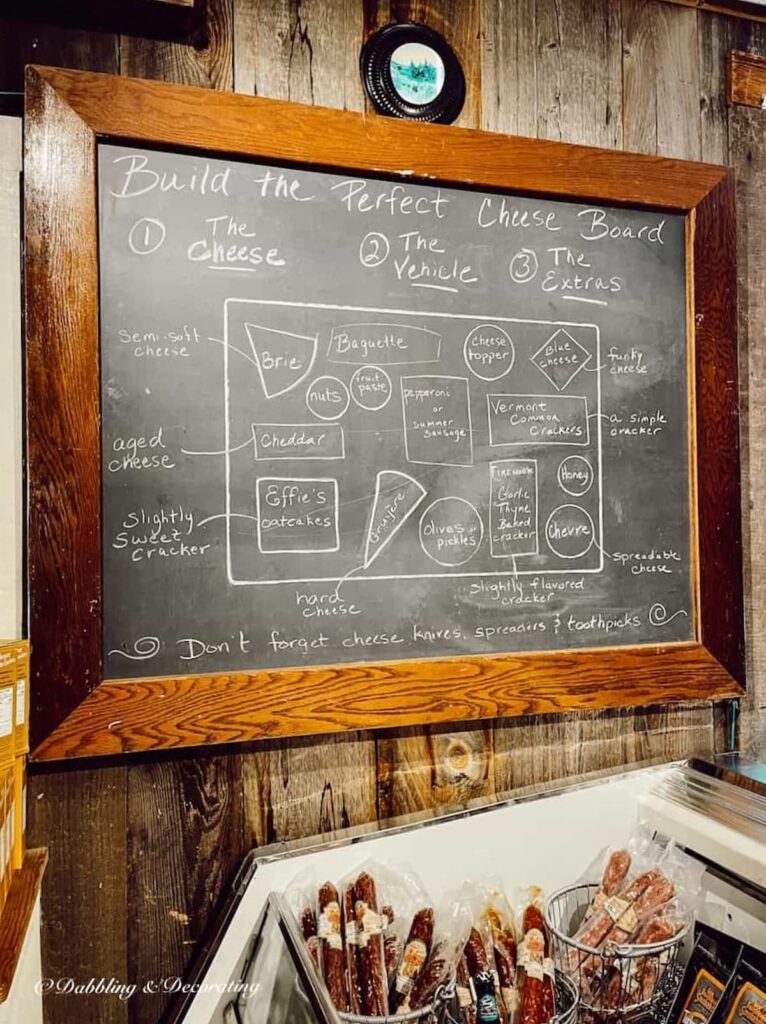 Build the Perfect Cheese Board
① The Cheese
② The Vehicle
③ The Extras
semi-soft cheese
Brie
Baguette
cheese topper
Blue cheese
funky cheese
nuts
fruit paste
pepperoni or summer sausage
Vermont Common Crackers
a simple cracker
aged cheese
Cheddar
Slightly Sweet cracker
Effie's oatcakes
Gruyere
hard cheese
Olives or pickles
Garlic Thyme Baked cracker
slightly flavored cracker
Honey
Chevre
spreadable cheese
Don't forget cheese knives, spreaders & toothpicks
©Dabbling & Decorating